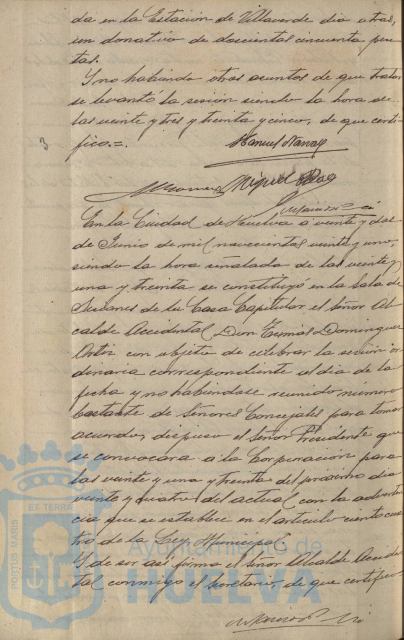 da en la Estación de Villaverde dias atras,
un donativo de doscientas cincuenta pese
tas.
Y no habiendo otros asuntos de que tratar
se levantó la sesión siendo la hora de
las veinte y tres y treinta y cinco, de que certi-
fico.=.
En la Ciudad de Huelva a veinte y dos
de Junio de mil novecientos veinte y uno,
siendo la hora señalada de las veinte y
una y treinta se constituyó en la Sala de
Sesiones de la Casa Capitular el señor Al
calde Accidental Don Tomas Dominguez
Ortiz con objeto de celebrar la sesión or
dinaria correspondiente al dia de la
fecha y no habiendose reunido número
bastante de señores Concejales para tomar
acuerdos, dispuso el señor Presidente que
se convocara a la Corporación para
las veinte y una y treinta del proximo dia
veinte y cuatro del actual con la adverten
cia que se establece en el articulo ciento cua
tro de la Ley Municipal.
Y de ser asi firma el señor Alcalde Acciden
tal conmigo el Secretario de que certifico.
PORTUS MARIS
ET TERRAE
Ayuntamiento de
HUELVA